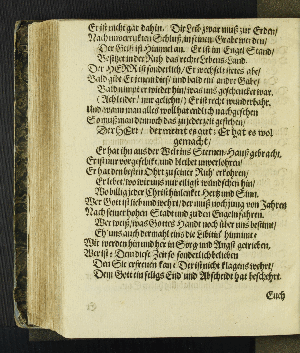 Er ist nicht gar dahin. Die Leib zwar muß zur Erden/
Nach unverrukten Schluß, in seinen Grabe werden/
Der Geist ist Himmel an. Er ist im Engel Stand/
Besitzet in der Ruh das rechte Lebens-Land.
Der HERR ist sonderlich/ Er wechselt
Bald gibt Er jenem diß/ und bald ein' andre Gabe/
Bald nimmt er wieder hin/ was uns geschencket war.
Ach lieber! nur gelichn/) Er ist recht wunderbahr.
Und wann man alles woll hat endlich nachgesehen
So muß man dennoch das zu jeder zeit gestehen/
Der HErr/ der meint es gut: Er hat es wol
gemacht/
Er hat ihn aus der Welt ins Sternen-Hauß gebracht.
Er ist nur vorgeschikt/ und bleibet unverlohren/
Er hat den besten Ohrt zu seiner Ruh' erkohren/
Er lebet/ wo wir uns nur eiligst wündschen hin/
Wo billig jeder Christ hinlenkt Hertz und Sinn.
Wer Gott ist lieb und wehrt/ der muß noch jung von Jahren
Nach seiner hohen Stadt und zu den Engeln fahren.
Wer weiß/ was Gottes Hand noch über uns bestimt/
Eh' uns auch dermahl eins die Libitin' hinnimt.
Wir werden hin und her in Sorg und Angst getrieben,
Wer ist: Dem diese Zeit so sonderlich belieben
Den Sie erfreuen kan? Der ist nicht klagens wehrt/
Dem Gott ein seligs End' und Abscheidt hat beschehrt.
Euch